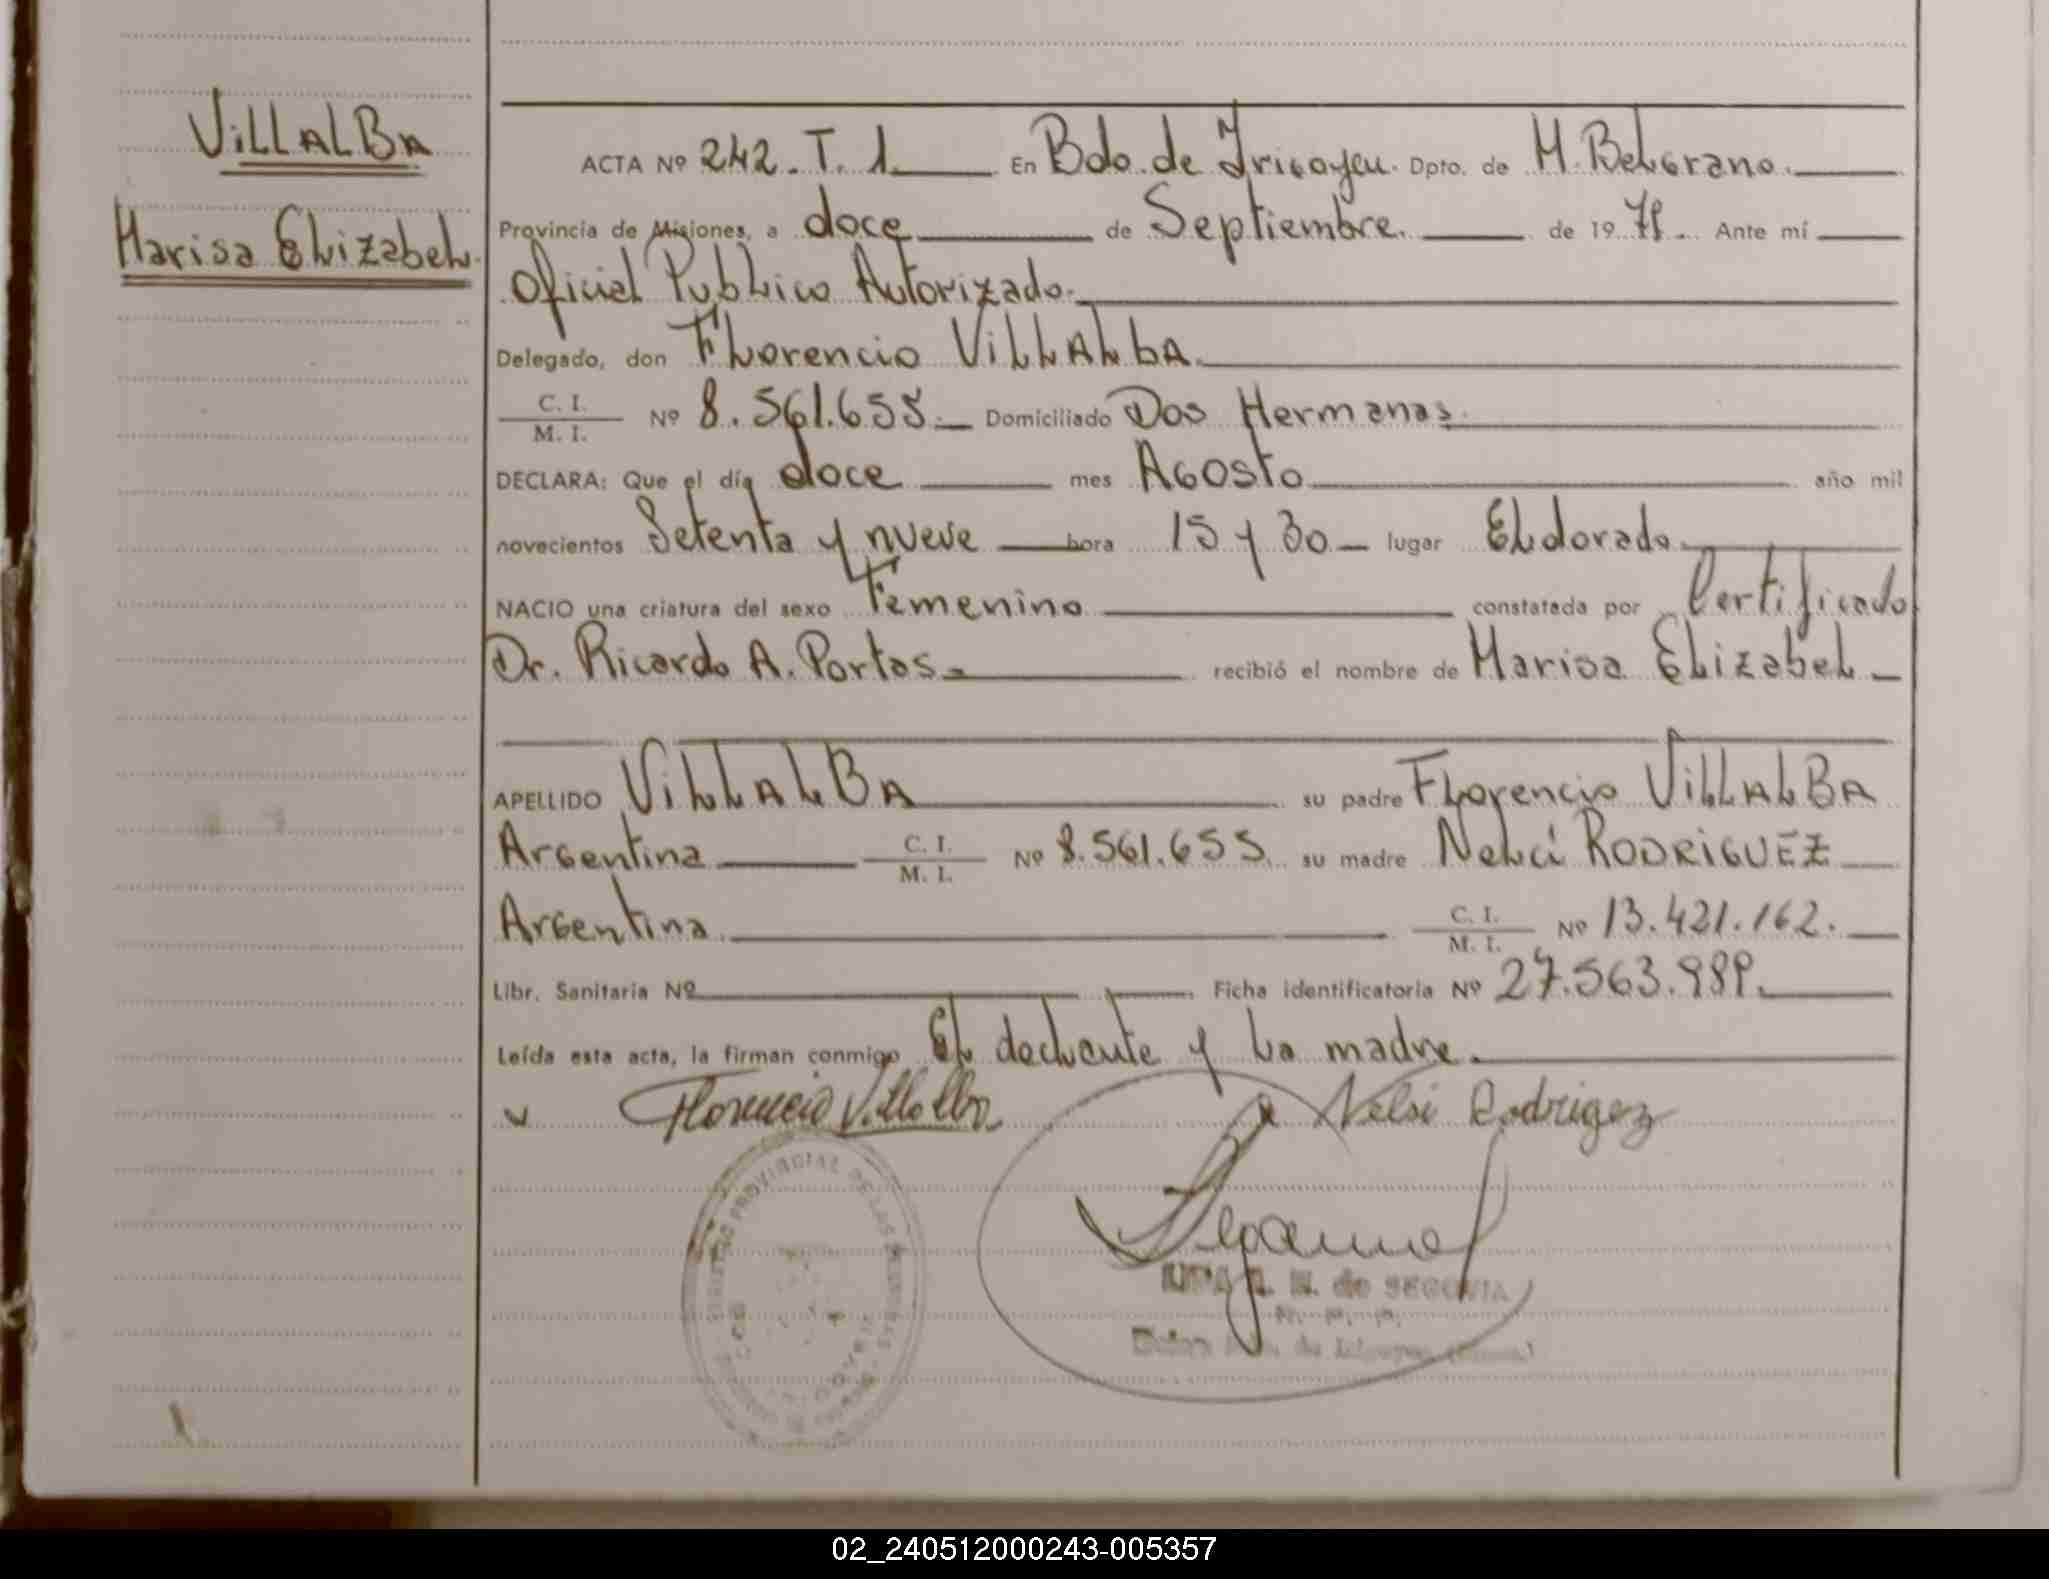 VILLALBA
Marisa Elizabel.
ACTA Nº 242. T. 1. En Bdo. de Irigoyen. Dpto. de M. Belgrano.
Provincia de Misiones, a doce de Septiembre. de 19 79. Ante mí
Oficial Publico Autorizado.
Delegado, don Florencio VILLALBA.
C. I.
M. I.
Nº 8.561.655. Domiciliado Dos Hermanas.
DECLARA: Que el día doce mes Agosto año mil
novecientos Setenta y nueve hora 15 y 30 lugar Eldorado.
NACIO una criatura del sexo Femenino constatada por Certificado
Dr. Ricardo A. Portas. recibió el nombre de Marisa Elizabel
APELLIDO VILLALBA su padre Florencio VILLALBA
Argentina C. I.
M. I. Nº 8.561.655 su madre Nelci RODRIGUEZ
Argentina C. I.
M. I. Nº 13.421.162.
Libr. Sanitaria Nº Ficha identificatoria Nº 27.563.989.
Leída esta acta, la firman conmigo El declarante y la madre.
Florencio Villalba x Nelsi Rodrigez
PROVINCIAL DE LAS
de SEGOVIA
02_240512000243-005357